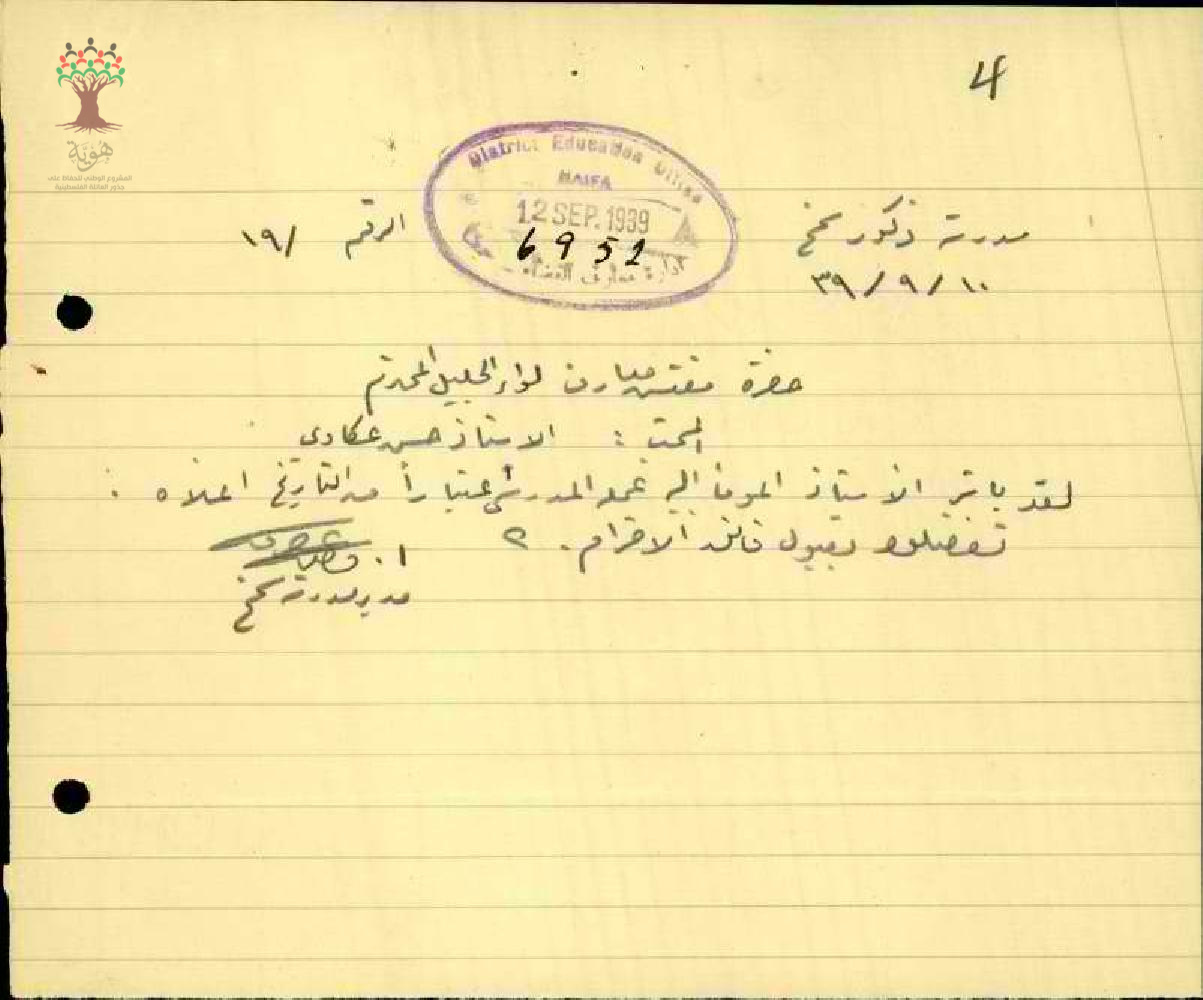 4
هوية
المشروع الوطني للحفاظ على
جذور العائلة الفلسطينية
District Education Office
HAIFA
12 SEP. 1939
6952
ادارة معارف القضاء
مدرسة ذكور سمخ
الرقم /١٩
١٠/ ٩ / ٣٩
حضرة مفتش معارف لواء الجليل المحترم
المبحث : الاستاذ حسن عكاوي
لقد باشر الاستاذ الموما اليه عمله المدرسي اعتباراً من التاريخ اعلاه .
تفضلوا بقبول فائق الاحترام .
مدير مدرسة سمخ